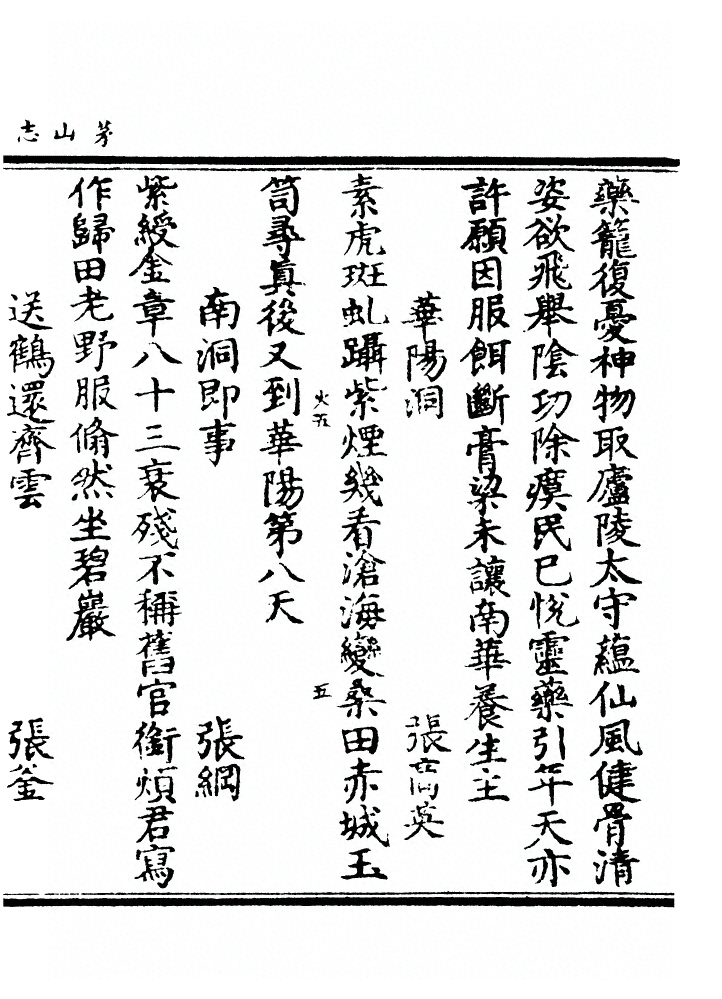 茅山志
藥籠復憂神物取廬陵太守蘊仙風健骨清
姿欲飛舉陰功除瘼民已悅靈藥引年天亦
許願因服餌斷膏粱未讓南華養生主
華陽洞 張商英
素虎斑虬躡紫煙幾看滄海變桑田赤城玉
火五
五
笥尋真後又到華陽第八天
南洞即事 張綱
紫綬金章八十三衰殘不稱舊官銜煩君寫
作歸田老野服翛然坐碧巖
送鶴還齊雲 張釜